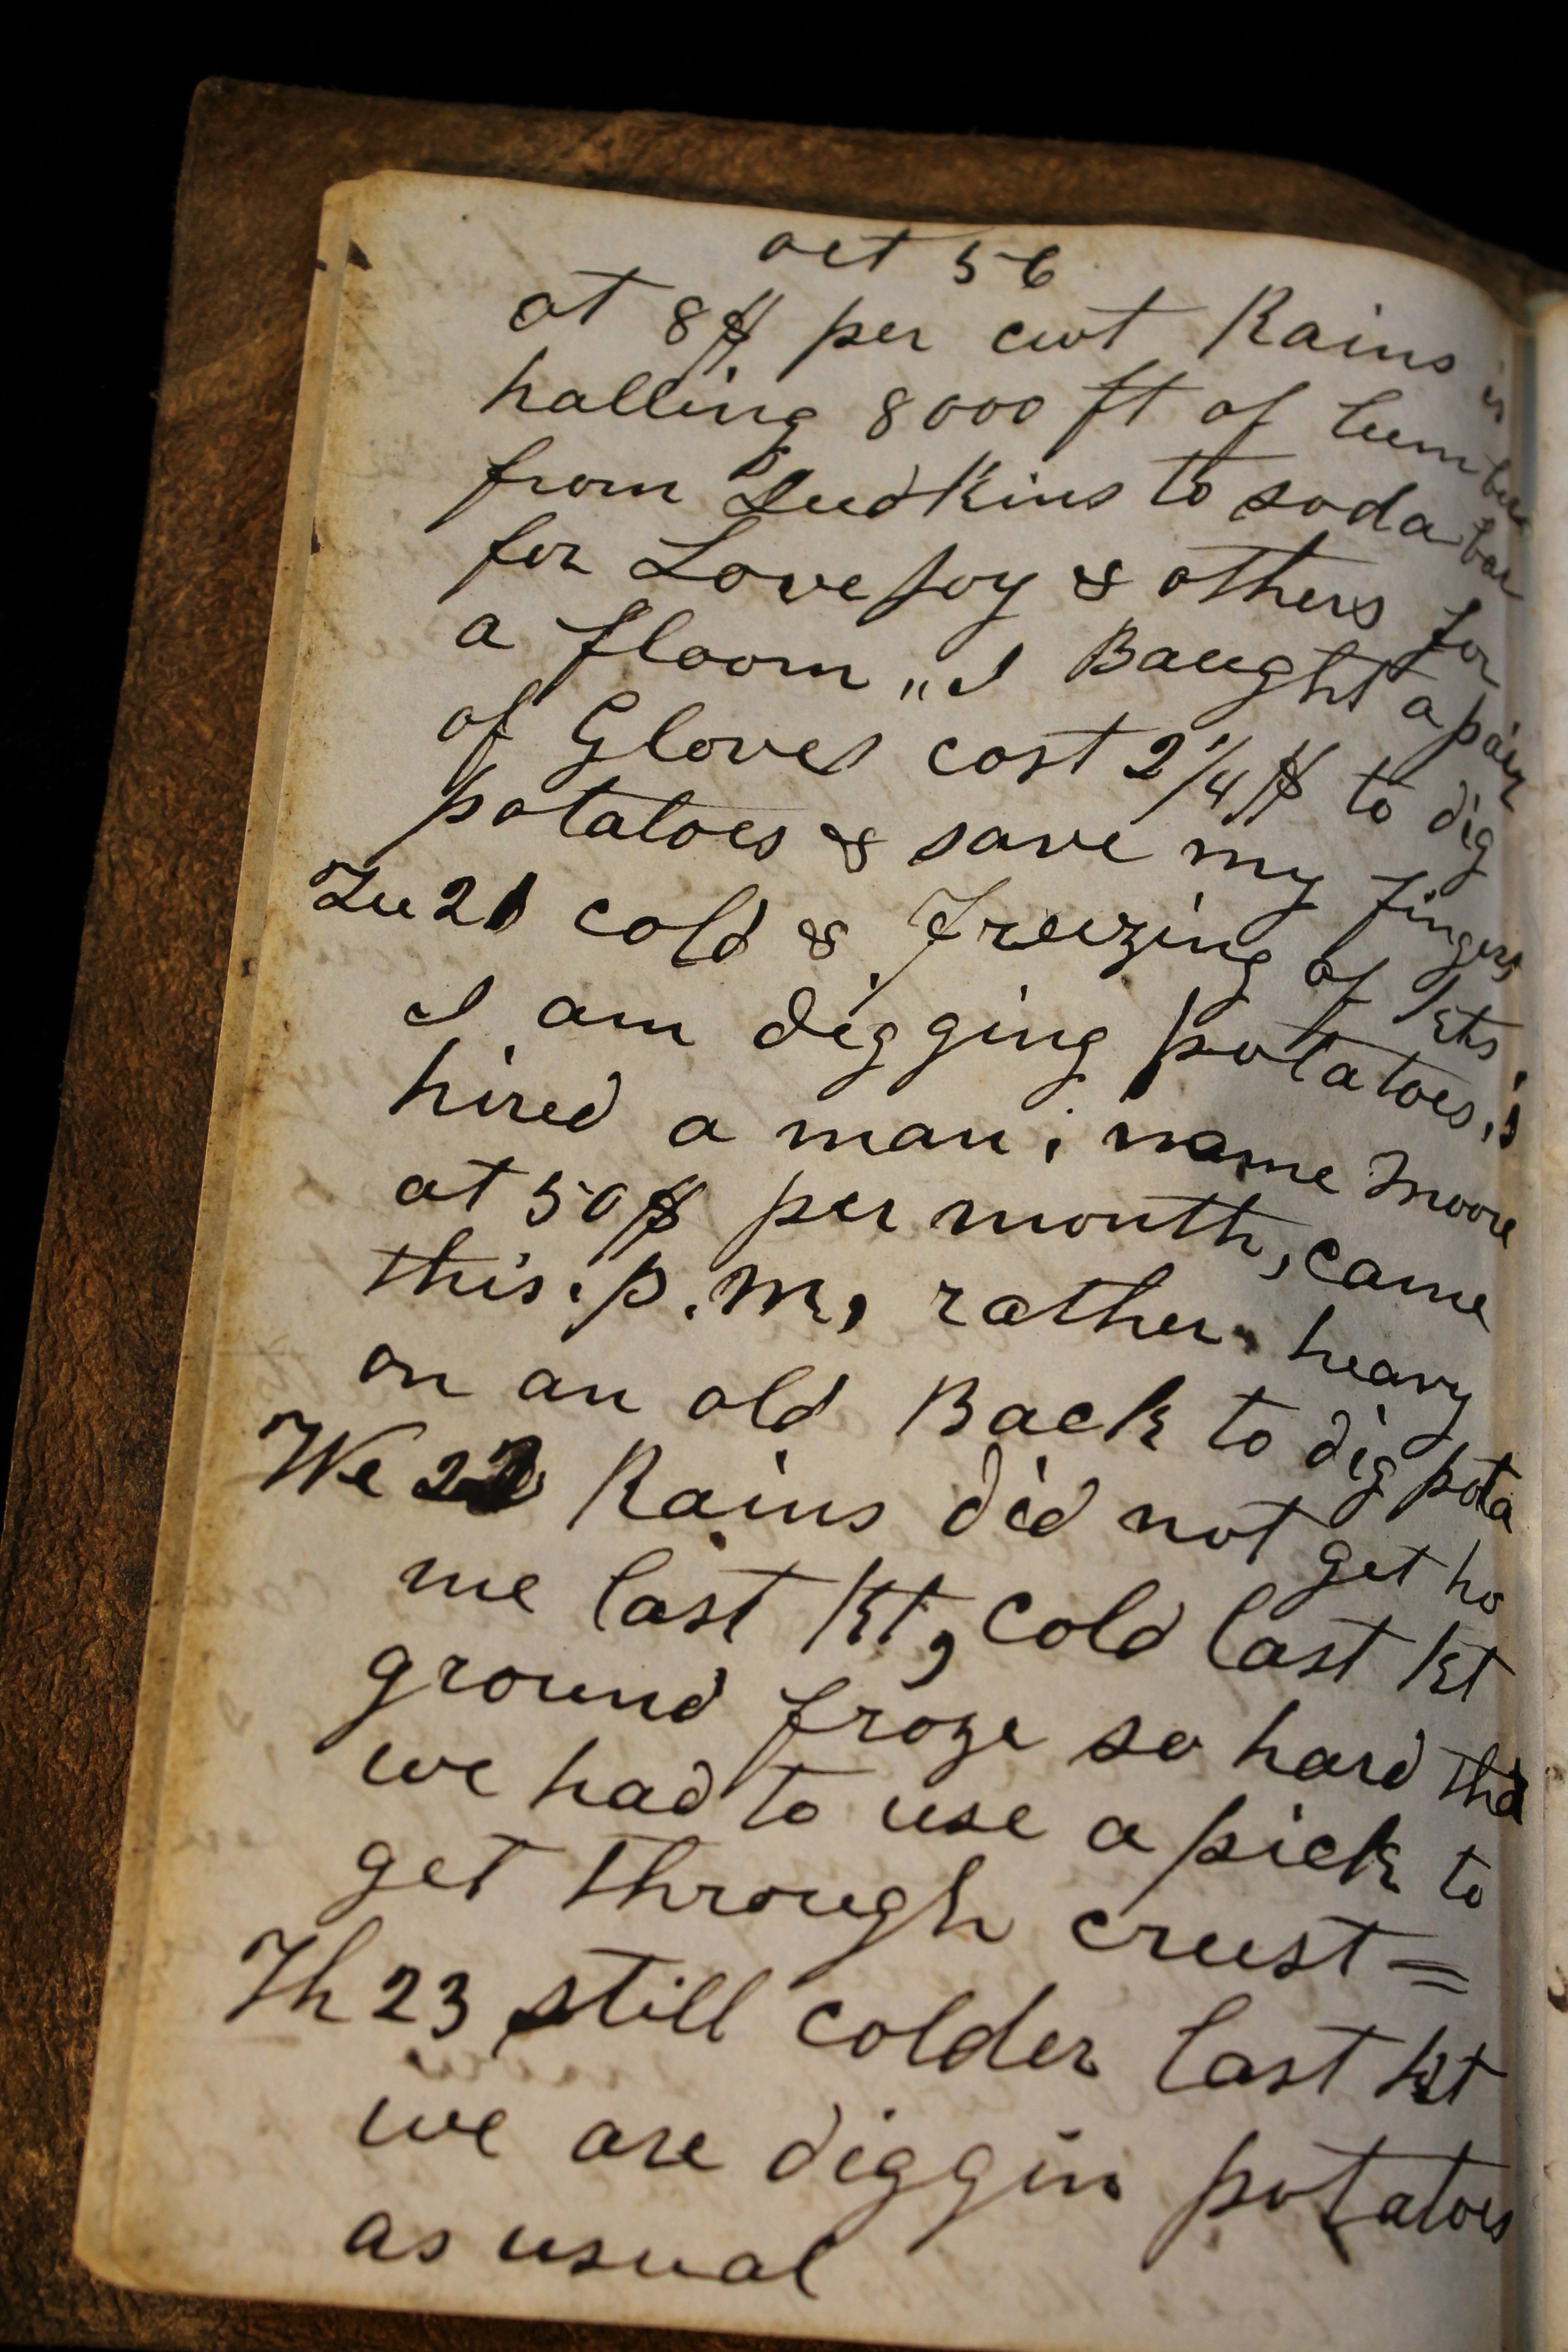 oct 56
at 8$ per cwt Rains is
halling 8000 ft of lumber
from Judkins to soda bar
for Lovejoy & others for
a floom „ I Baught a pair
of Gloves cost 2 1/4 $ to dig
potatoes & save my fingers
Tu 21 cold & freezing of kts,
I am digging potatoes, i
hired a man; name Moore
at 50$ per month, came
this. p.m, rather heavy
on an old Back to dig pota
We 22 Rains did not get ho
me last kt, cold last kt
ground froze so hard that
we had to use a pick to
get through crust =
Th 23 still colder last kt
we are diggin potatoes
as usual